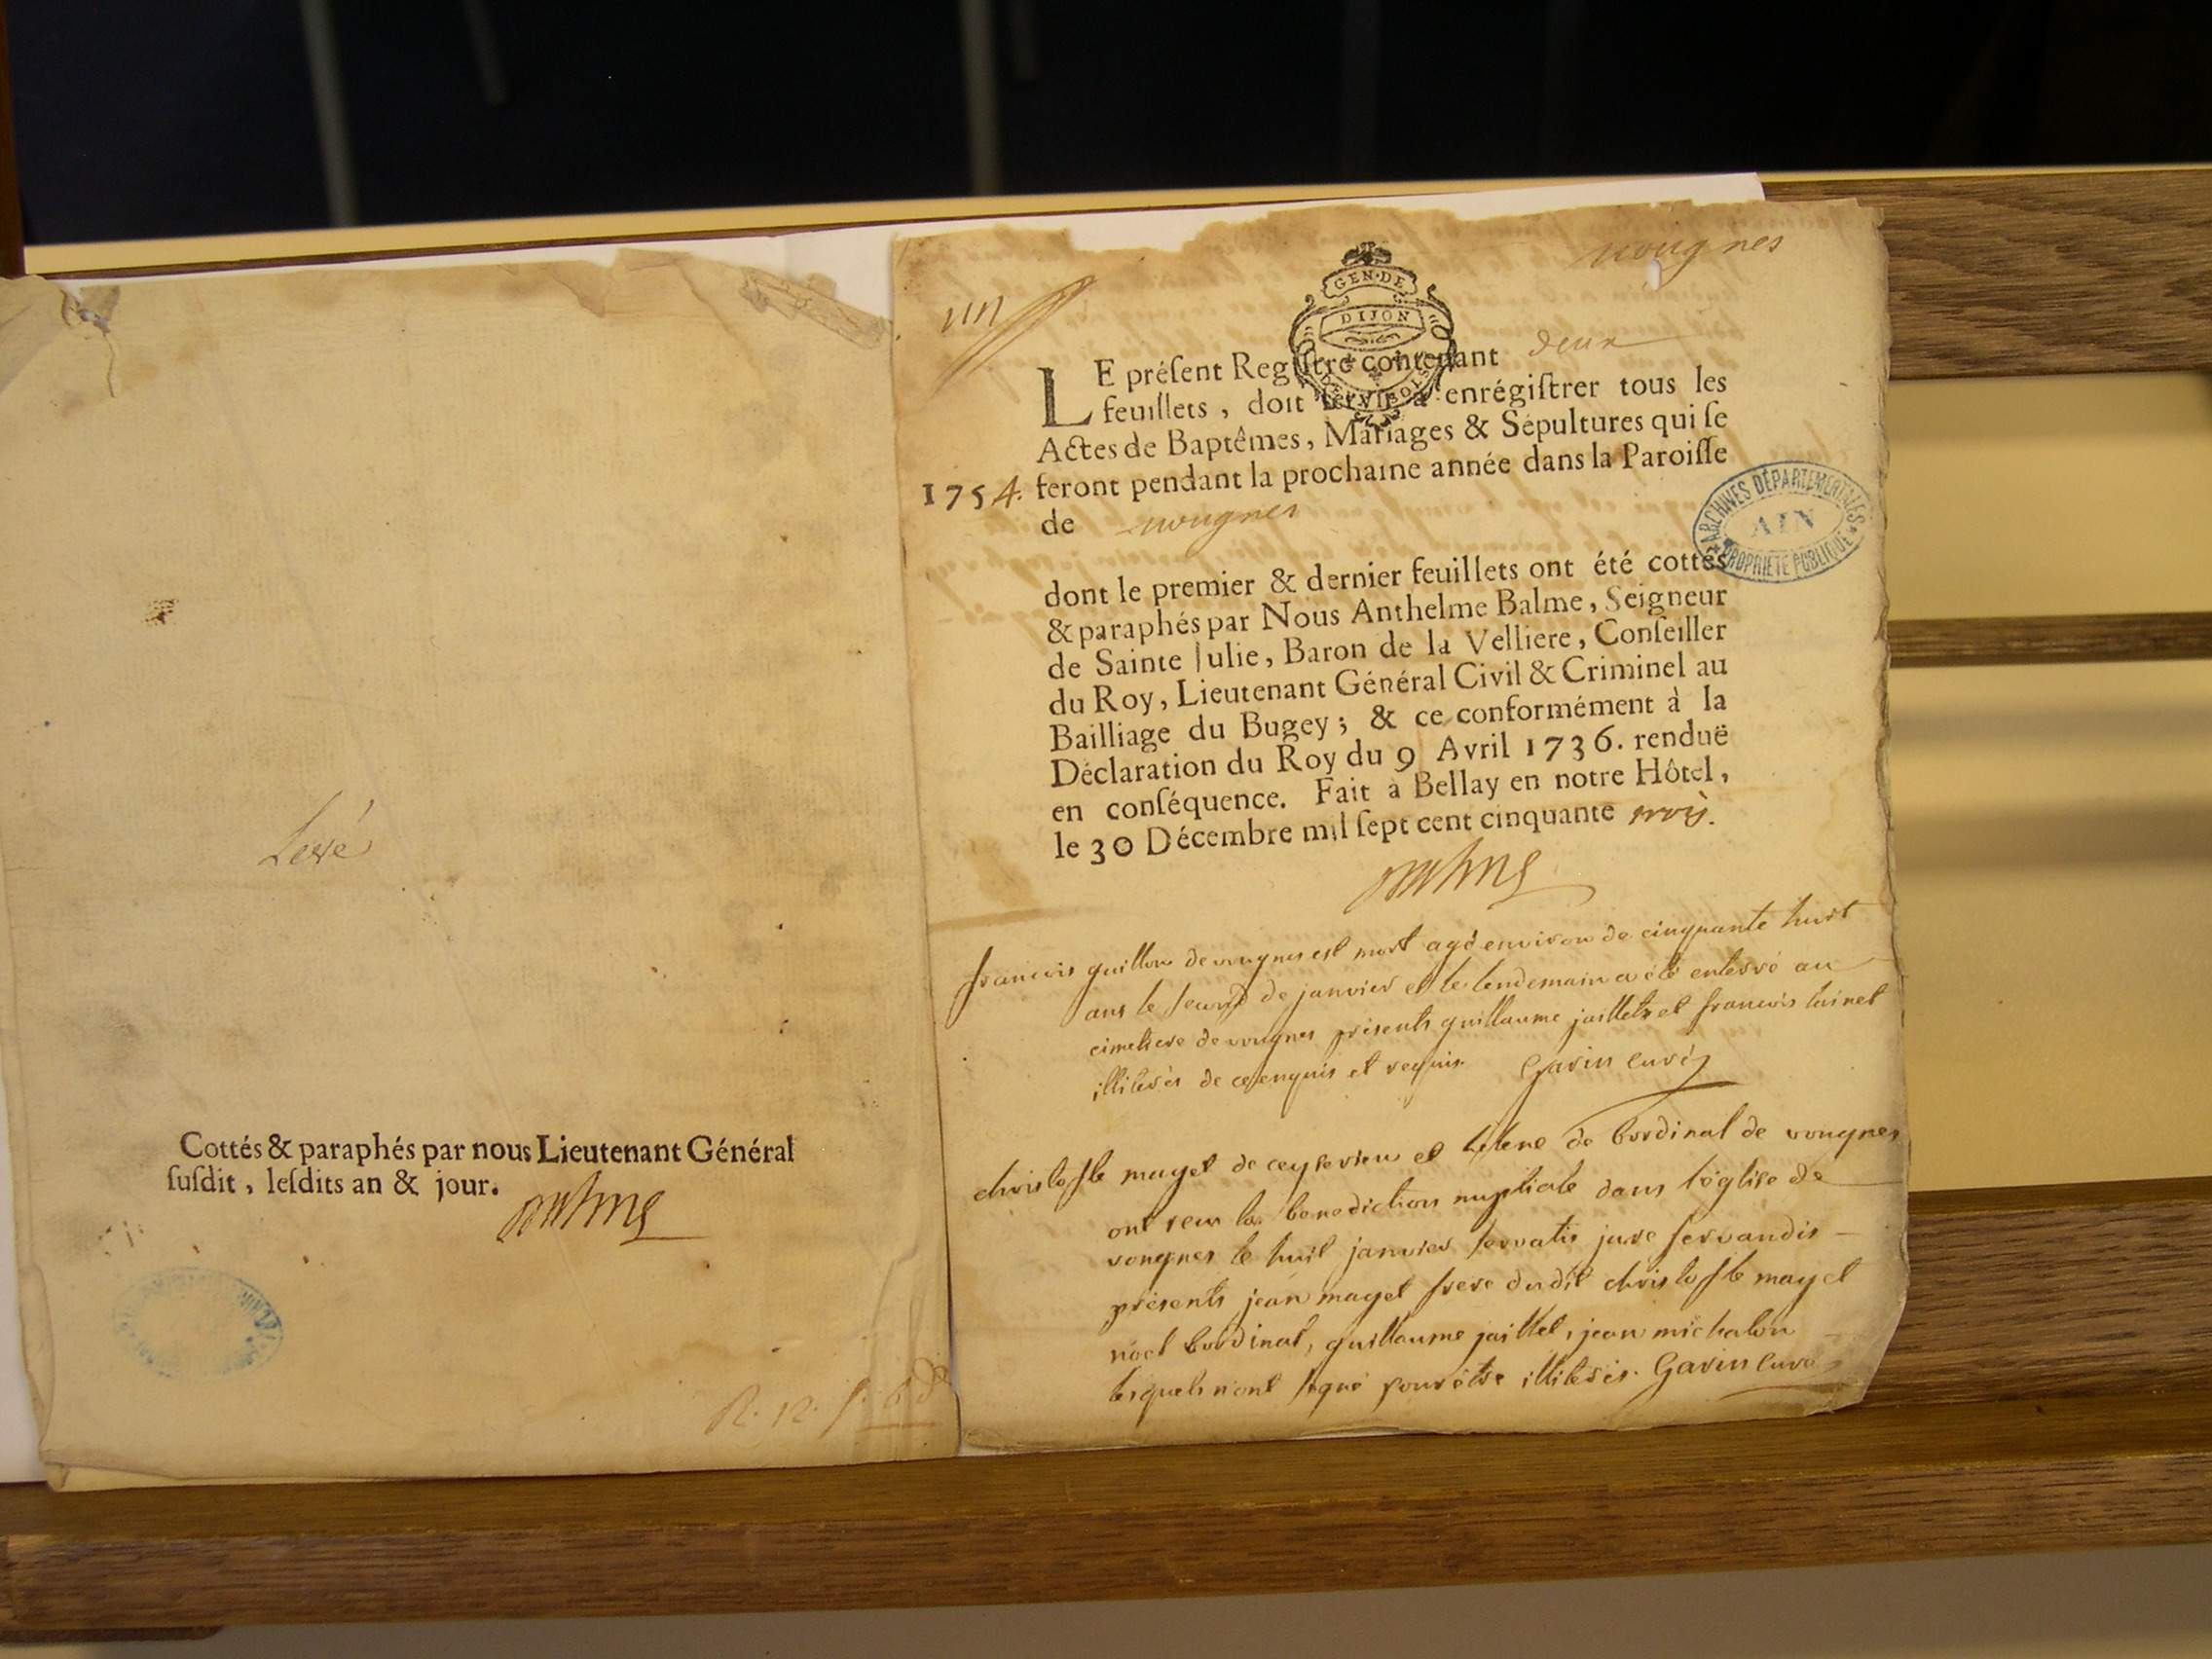 Cottés & paraphés par nous Lieutenant Général
ſuſdit, leſdits an & jour.
R. 12. ſ. 6 d
vougnes
un
GEN·DE
DIJON
LE préſent Regiſtre contenant deux
feuillets, doit ſervir à enrégiſtrer tous les
Actes de Baptêmes, Mariages & Sépultures qui ſe
1754. feront pendant la prochaine année dans la Paroiſſe
de vougnes
ARCHIVES DÉPARTEMENTALES
AIN
PROPRIÉTÉ PUBLIQUE
dont le premier & dernier feuillets ont été cottés
& paraphés par Nous Anthelme Balme, Seigneur
de Sainte Julie, Baron de la Velliere, Conſeiller
du Roy, Lieutenant Général Civil & Criminel au
Bailliage du Bugey; & ce conformément à la
Déclaration du Roy du 9 Avril 1736. renduë
en conſéquence. Fait à Bellay en notre Hôtel,
le 30 Décembre mil ſept cent cinquante trois.
francois guillon de vougnes est mort agé environ de cinquante huit
ans le second de janvier et le lendemain a été enterré au
cimetiere de vougnes présents guillaume jaillet et francois
illiterés de ce enquis et requis. Garin curé
christofle mayet de ceyserieu et helene de bordinat de vougnes
ont reçu la benediction nuptiale dans l'église de
vougnes le huit janvier servatis jure servandis
présents jean mayet frere dudit christofle mayet
noel bordinat, guillaume jaillet, jean michalon
lesquels n'ont signé pour être illiterés. Garin curé